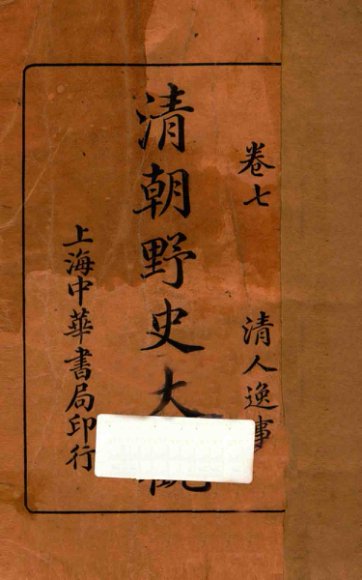 卷七　清人逸事
清朝野史大
上海中華書局印行